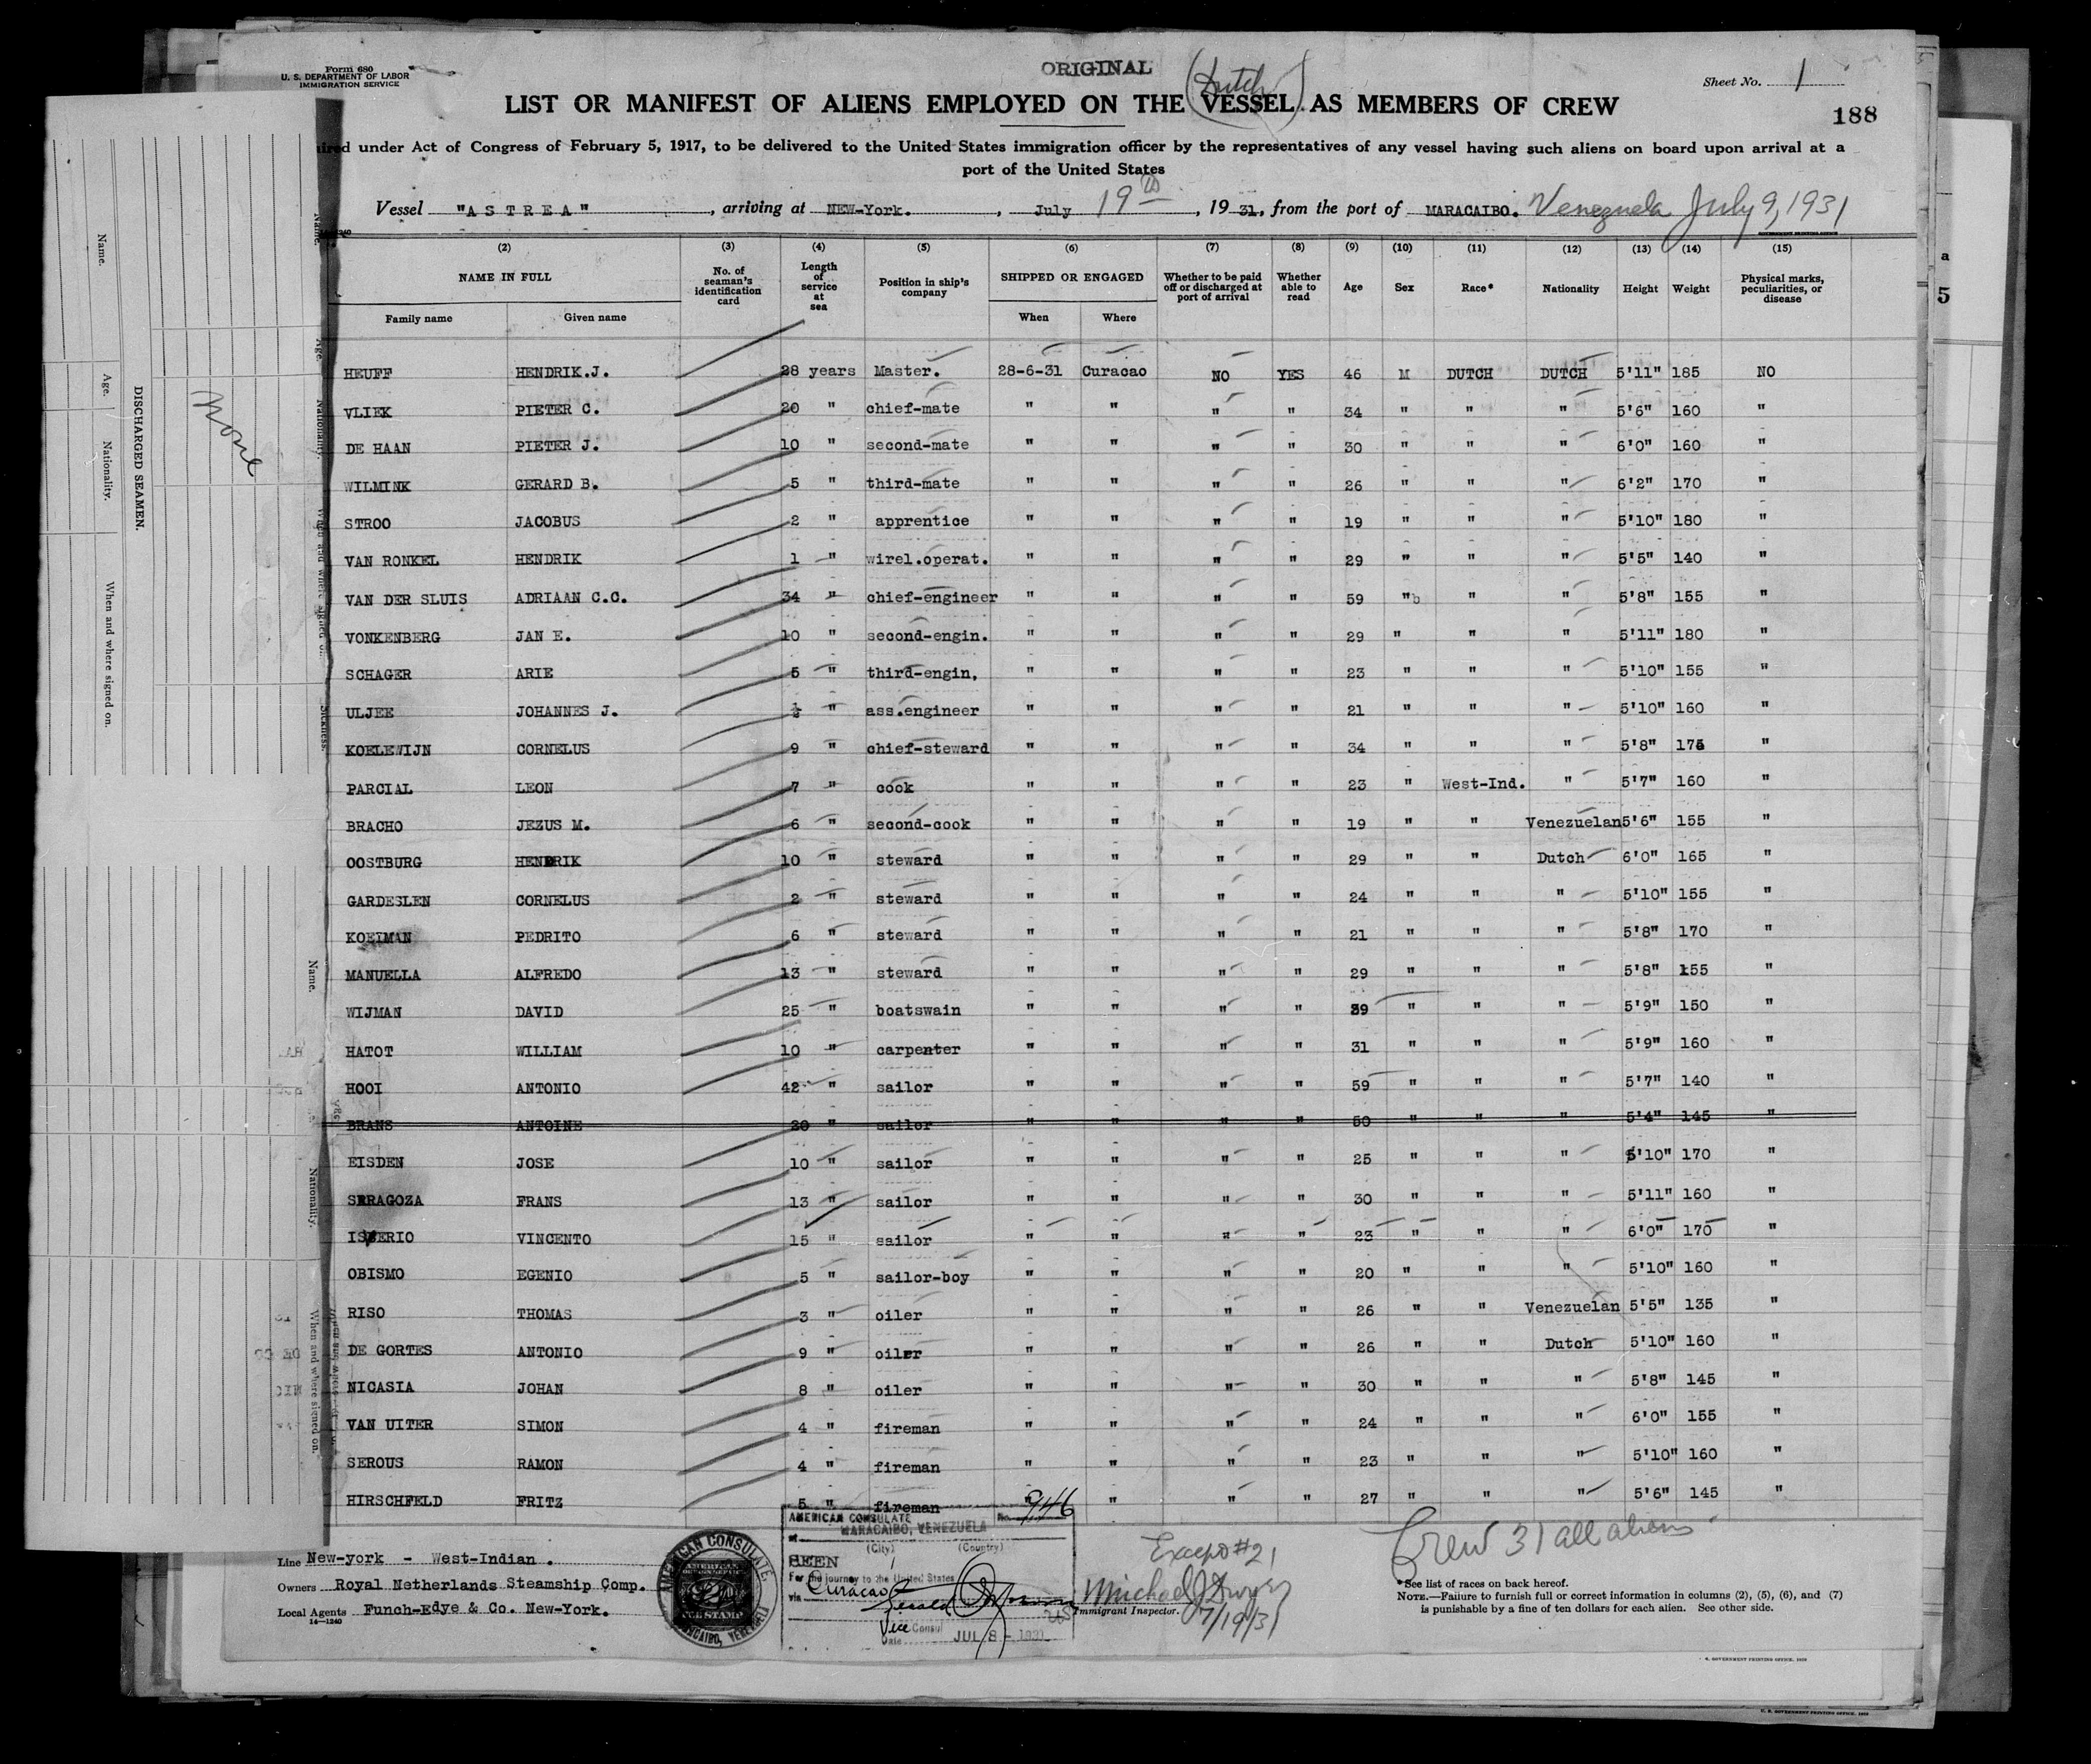 Form 680
U. S. DEPARTMENT OF LABOR
IMMIGRATION SERVICE
ORIGINAL
(Dutch)
Sheet No. 1
188
LIST OR MANIFEST OF ALIENS EMPLOYED ON THE VESSEL AS MEMBERS OF CREW
under Act of Congress of February 5, 1917, to be delivered to the United States immigration officer by the representatives of any vessel having such aliens on board upon arrival at a
port of the United States
Vessel "ASTREA", arriving at NEW-York., July 19th, 1931, from the port of MARACAIBO. Venezuela July 9, 1931
(2) (3) (4) (5) (6) (7) (8) (9) (10) (11) (12) (13) (14) (15)
NAME IN FULL No. of seaman's identification card Length of service at sea Position in ship's company SHIPPED OR ENGAGED Whether to be paid off or discharged at port of arrival Whether able to read Age Sex Race* Nationality Height Weight Physical marks, peculiarities, or disease
Family name Given name When Where
HEUFF HENDRIK.J. 28 years Master. 28-6-31 Curacao NO YES 46 M DUTCH DUTCH 5'11" 185 NO
VLIEK PIETER C. 20 " chief-mate " " " " 34 " " " 5'6" 160 "
DE HAAN PIETER J. 10 " second-mate " " " " 30 " " " 6'0" 160 "
WILMINK GERARD B. 5 " third-mate " " " " 26 " " " 6'2" 170 "
STROO JACOBUS 2 " apprentice " " " " 19 " " " 5'10" 180 "
VAN RONKEL HENDRIK 1 " wirel.operat. " " " " 29 " " " 5'5" 140 "
VAN DER SLUIS ADRIAAN C.C. 34 " chief-engineer " " " " 59 " " " 5'8" 155 "
VONKENBERG JAN E. 10 " second-engin. " " " " 29 " " " 5'11" 180 "
SCHAGER ARIE 5 " third-engin, " " " " 23 " " " 5'10" 155 "
ULJEE JOHANNES J. ½ " ass.engineer " " " " 21 " " " 5'10" 160 "
KOELEWIJN CORNELUS 9 " chief-steward " " " " 34 " " " 5'8" 175 "
PARCIAL LEON 7 " cook " " " " 23 " West-Ind. " 5'7" 160 "
BRACHO JEZUS M. 6 " second-cook " " " " 19 " " Venezuelan 5'6" 155 "
OOSTBURG HENDRIK 10 " steward " " " " 29 " " Dutch 6'0" 165 "
GARDESLEN CORNELUS 2 " steward " " " " 24 " " " 5'10" 155 "
KOEIMAN PEDRITO 6 " steward " " " " 21 " " " 5'8" 170 "
MANUELLA ALFREDO 13 " steward " " " " 29 " " " 5'8" 155 "
WIJMAN DAVID 25 " boatswain " " " " 39 " " " 5'9" 150 "
HATOT WILLIAM 10 " carpenter " " " " 31 " " " 5'9" 160 "
HOOI ANTONIO 42 " sailor " " " " 59 " " " 5'7" 140 "
BRANS ANTOINE 20 " sailor " " " " 50 " " " 5'4" 145 "
EISDEN JOSE 10 " sailor " " " " 25 " " " 5'10" 170 "
SARAGOZA FRANS 13 " sailor " " " " 30 " " " 5'11" 160 "
VINCENTO 15 " sailor " " " " 23 " " " 6'0" 170 "
OBISMO EGENIO 5 " sailor-boy " " " " 20 " " " 5'10" 160 "
RISO THOMAS 3 " oiler " " " " 26 " " Venezuelan 5'5" 135 "
DE GORTES ANTONIO 9 " oiler " " " " 26 " " Dutch 5'10" 160 "
NICASIA JOHAN 8 " oiler " " " " 30 " " " 5'8" 145 "
VAN UITER SIMON 4 " fireman " " " " 24 " " " 6'0" 155 "
SEROUS RAMON 4 " fireman " " " " 23 " " " 5'10" 160 "
HIRSCHFELD FRITZ 5 " fireman " " " " 27 " " " 5'6" 145 "
Line New-york - West-Indian.
Owners Royal Netherlands Steamship Comp.
Local Agents Funch-Edye & Co. New-York.
14-1240
AMERICAN CONSULATE
AMERICAN CONSULATE No. 946
at MARACAIBO, VENEZUELA
(City) (Country)
SEEN
For the journey to the United States
via Curacao
Vice Consul
Date JUL 8 - 1931
Except #21
Michael J Dwyer
Immigrant Inspector.
7/19/31
Crew 31 all aliens
*See list of races on back hereof.
NOTE.—Failure to furnish full or correct information in columns (2), (5), (6), and (7)
is punishable by a fine of ten dollars for each alien. See other side.
U. S. GOVERNMENT PRINTING OFFICE
DISCHARGED SEAMEN.
Name. Age. Nationality. When and where signed on.
None
Name.
Nationality.
When and where signed on.
Sickness.
a
5